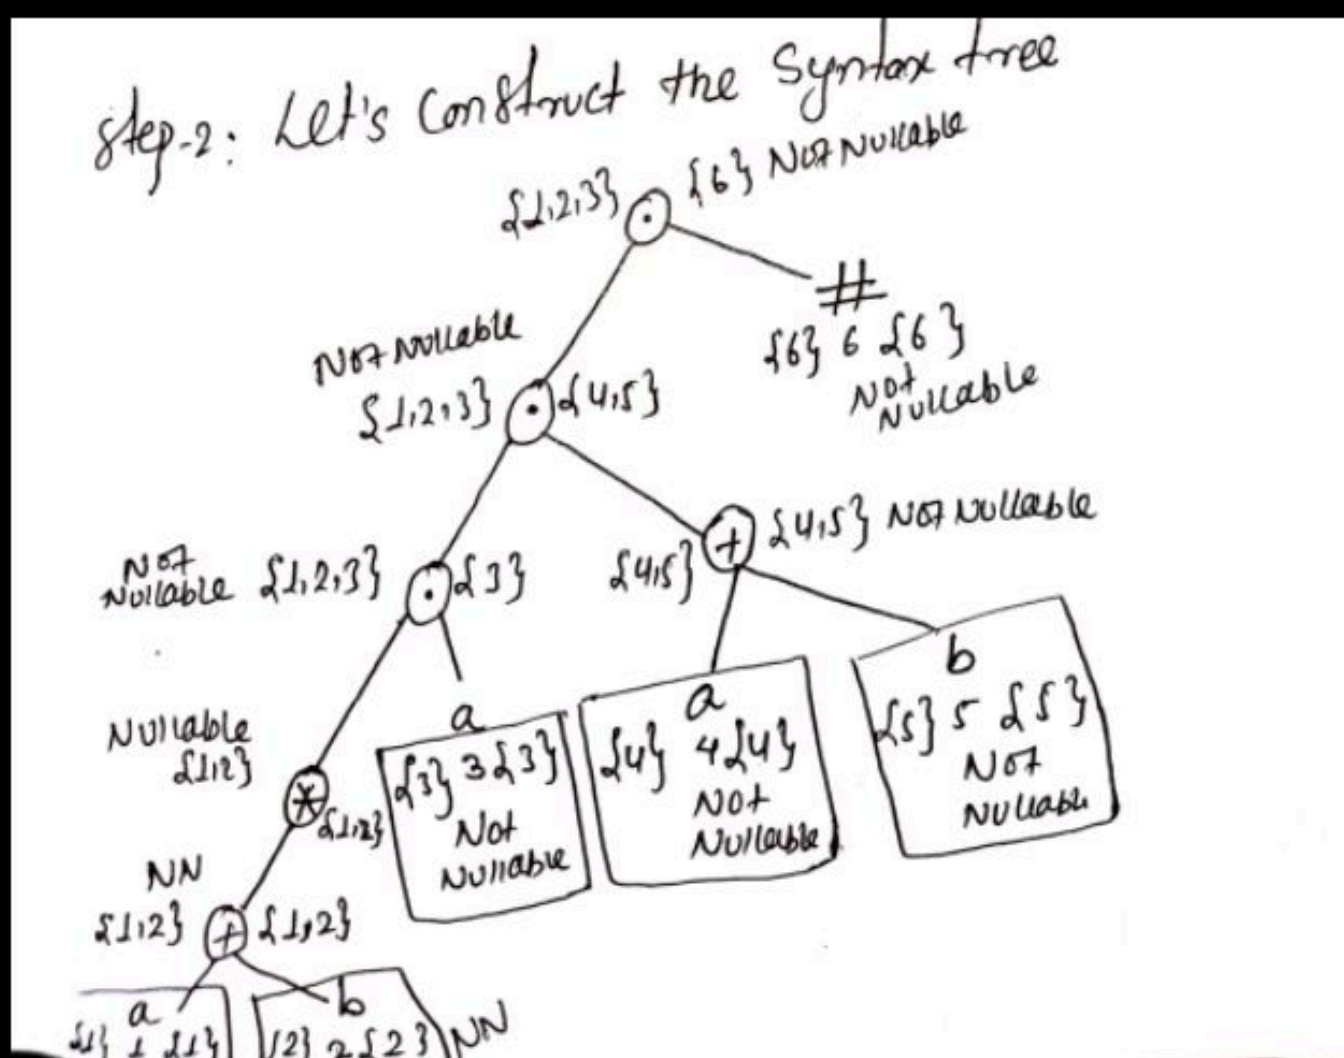 Step-2: Let's Construct the Syntax tree
{1,2,3} . {6} Not Nullable
#
{6} 6 {6}
Not
Nullable
Not Nullable
{1,2,3} . {4,5}
+ {4,5} Not Nullable
{4,5}
Not
Nullable {1,2,3} . {3}
a
{3} 3 {3}
Not
Nullable
a
{4} 4 {4}
Not
Nullable
b
{5} 5 {5}
Not
Nullable
Nullable
{1,2}
*
{1,2}
NN
{1,2} + {1,2}
a
{1} 1 {1}
b
{2} 2 {2} NN